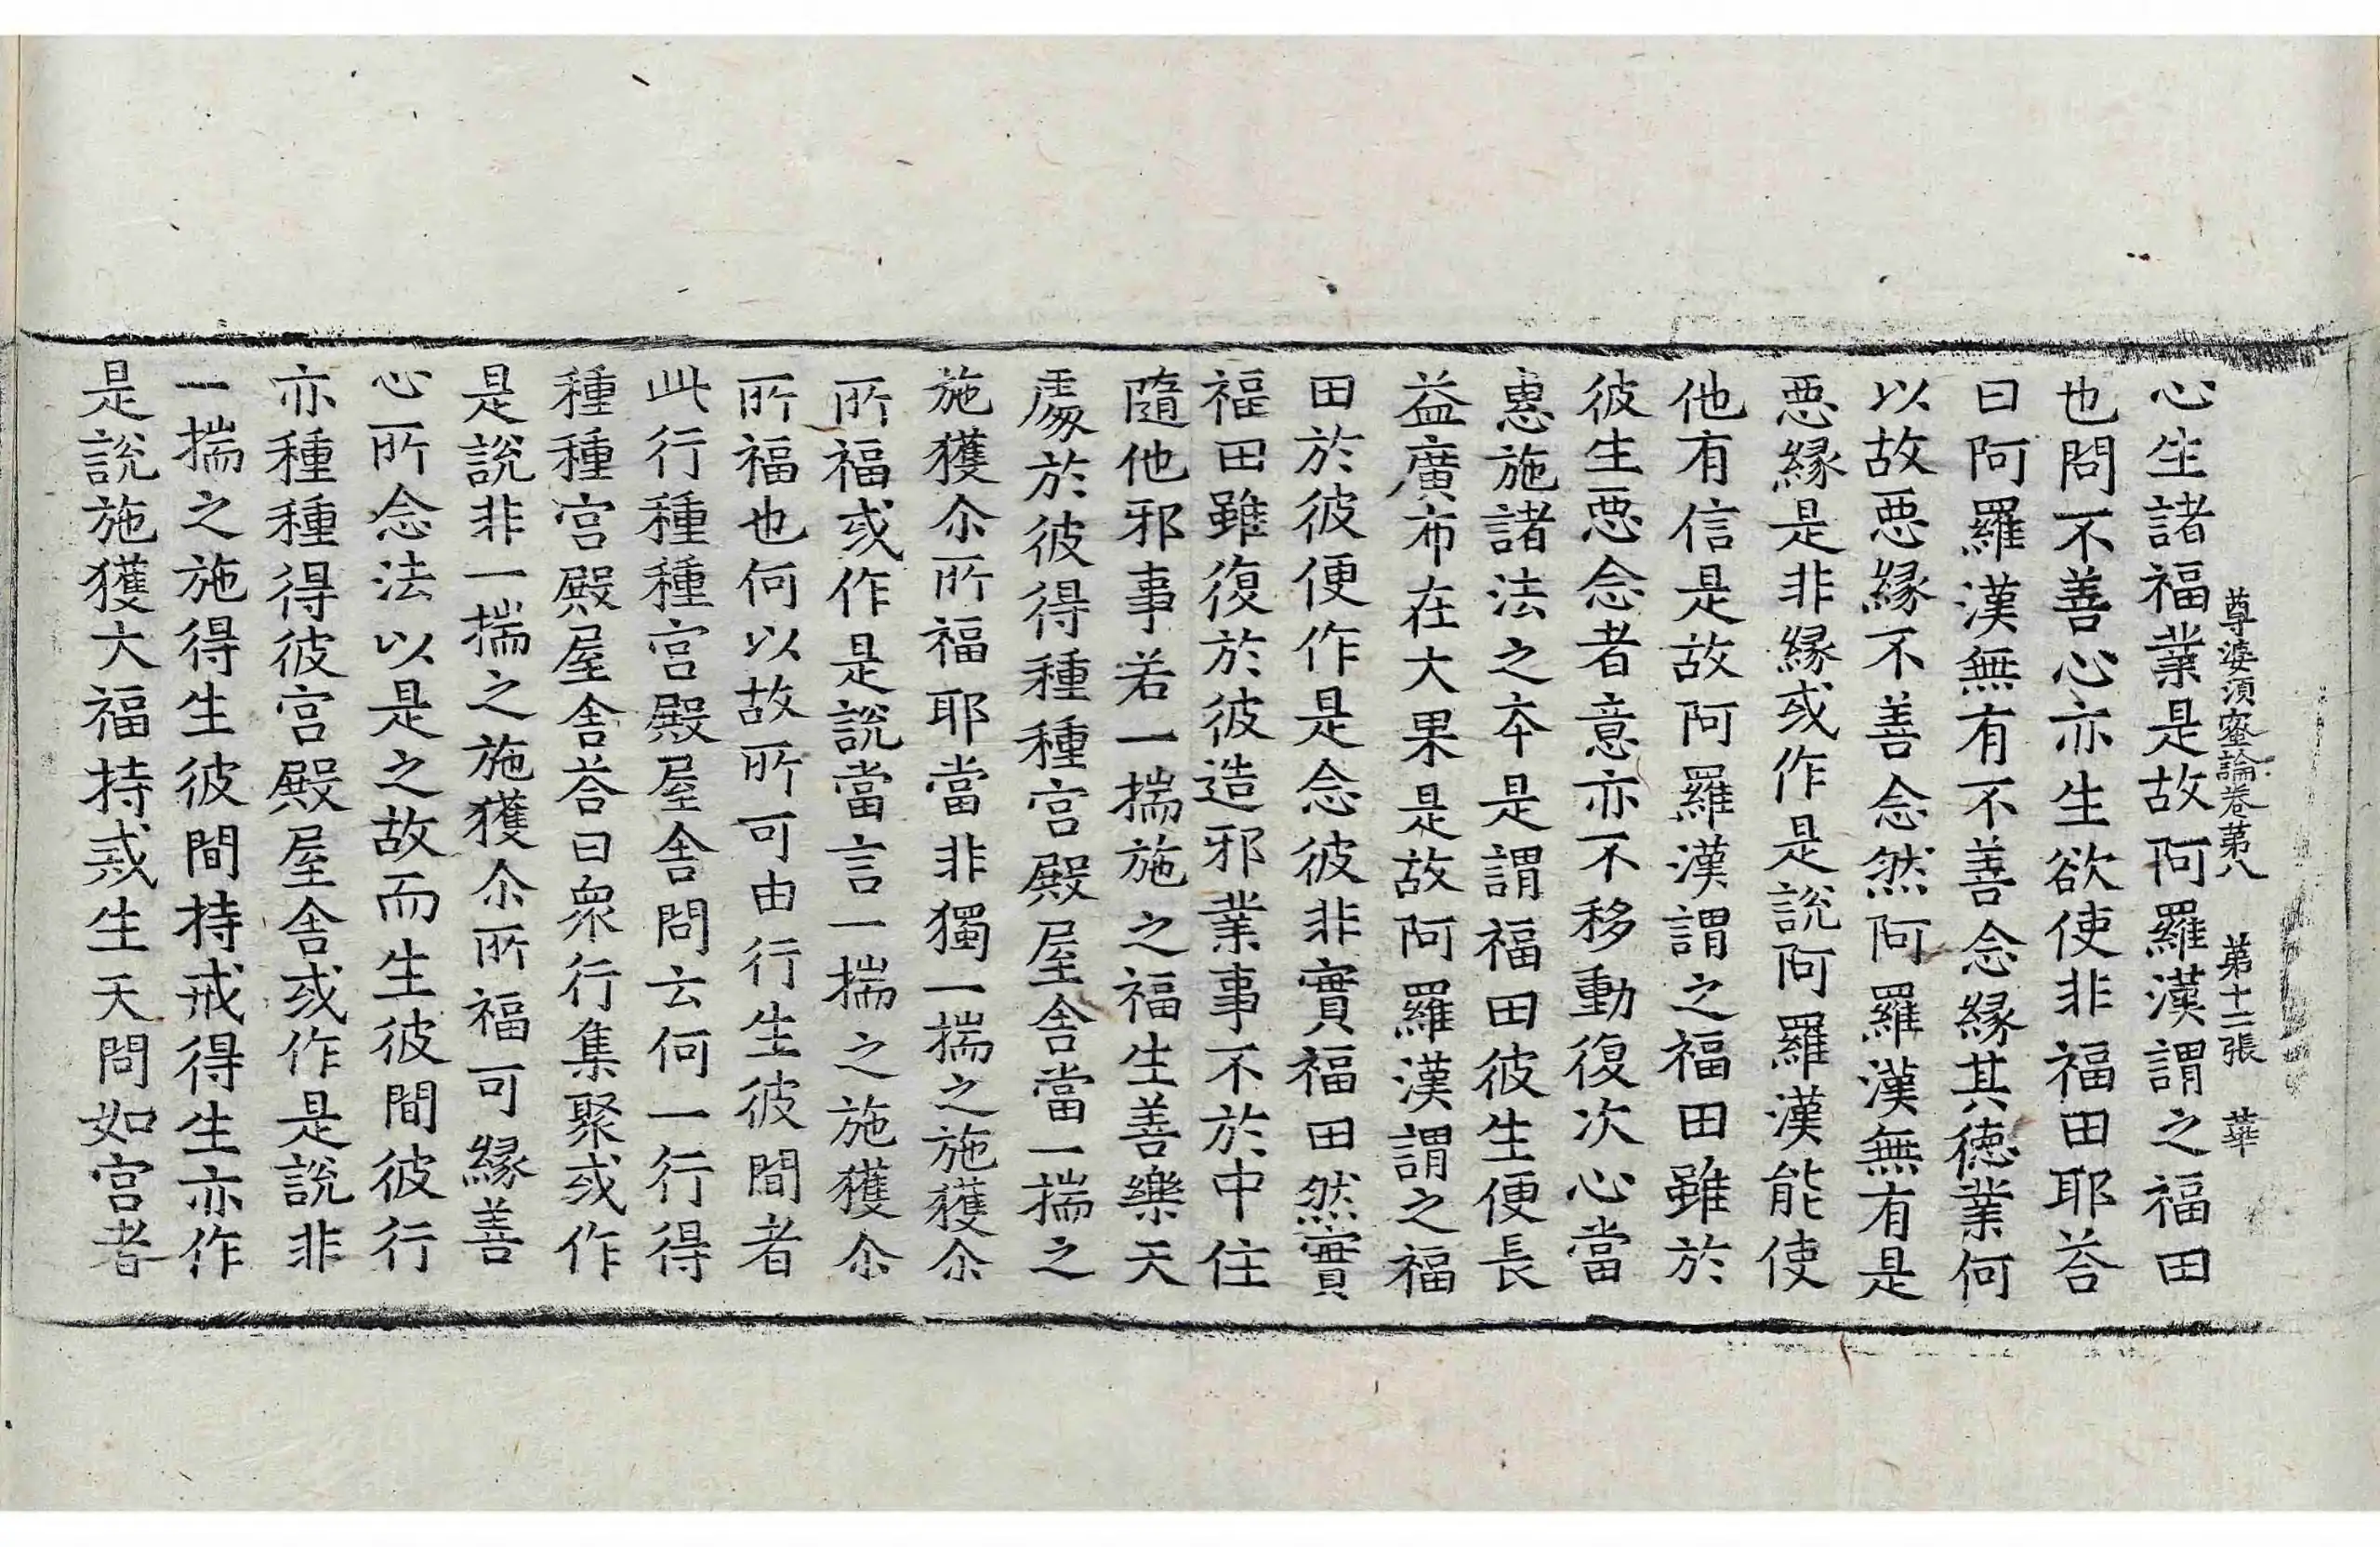 尊婆須蜜論卷第八　第十二張　華
心生諸福業是故阿羅漢謂之福田
也問不善心亦生欲使非福田耶荅
曰阿羅漢無有不善念縁其徳業何
以故悪縁不善念然阿羅漢無有是
悪縁是非縁或作是說阿羅漢能使
他有信是故阿羅漢謂之福田雖於
彼生悪念者意亦不移動復次心當
惠施諸法之夲是謂福田彼生便長
益廣布在大果是故阿羅漢謂之福
田於彼便作是念彼非實福田然實
福田雖復於彼造邪業事不於中住
隨他邪事若一揣施之福生善樂天
處於彼得種種宮殿屋舎當一揣之
施獲尒所福耶當非獨一揣之施獲尒
所福或作是說當言一揣之施獲尒
所福也何以故所可由行生彼間者
此行種種宮殿屋舎問云何一行得
種種宮殿屋舎荅曰衆行集聚或作
是說非一揣之施獲尒所福可縁善
心所念法以是之故而生彼間彼行
亦種種得彼宮殿屋舎或作是說非
一揣之施得生彼間持戒得生亦作
是說施獲大福持戒生天問如宮者